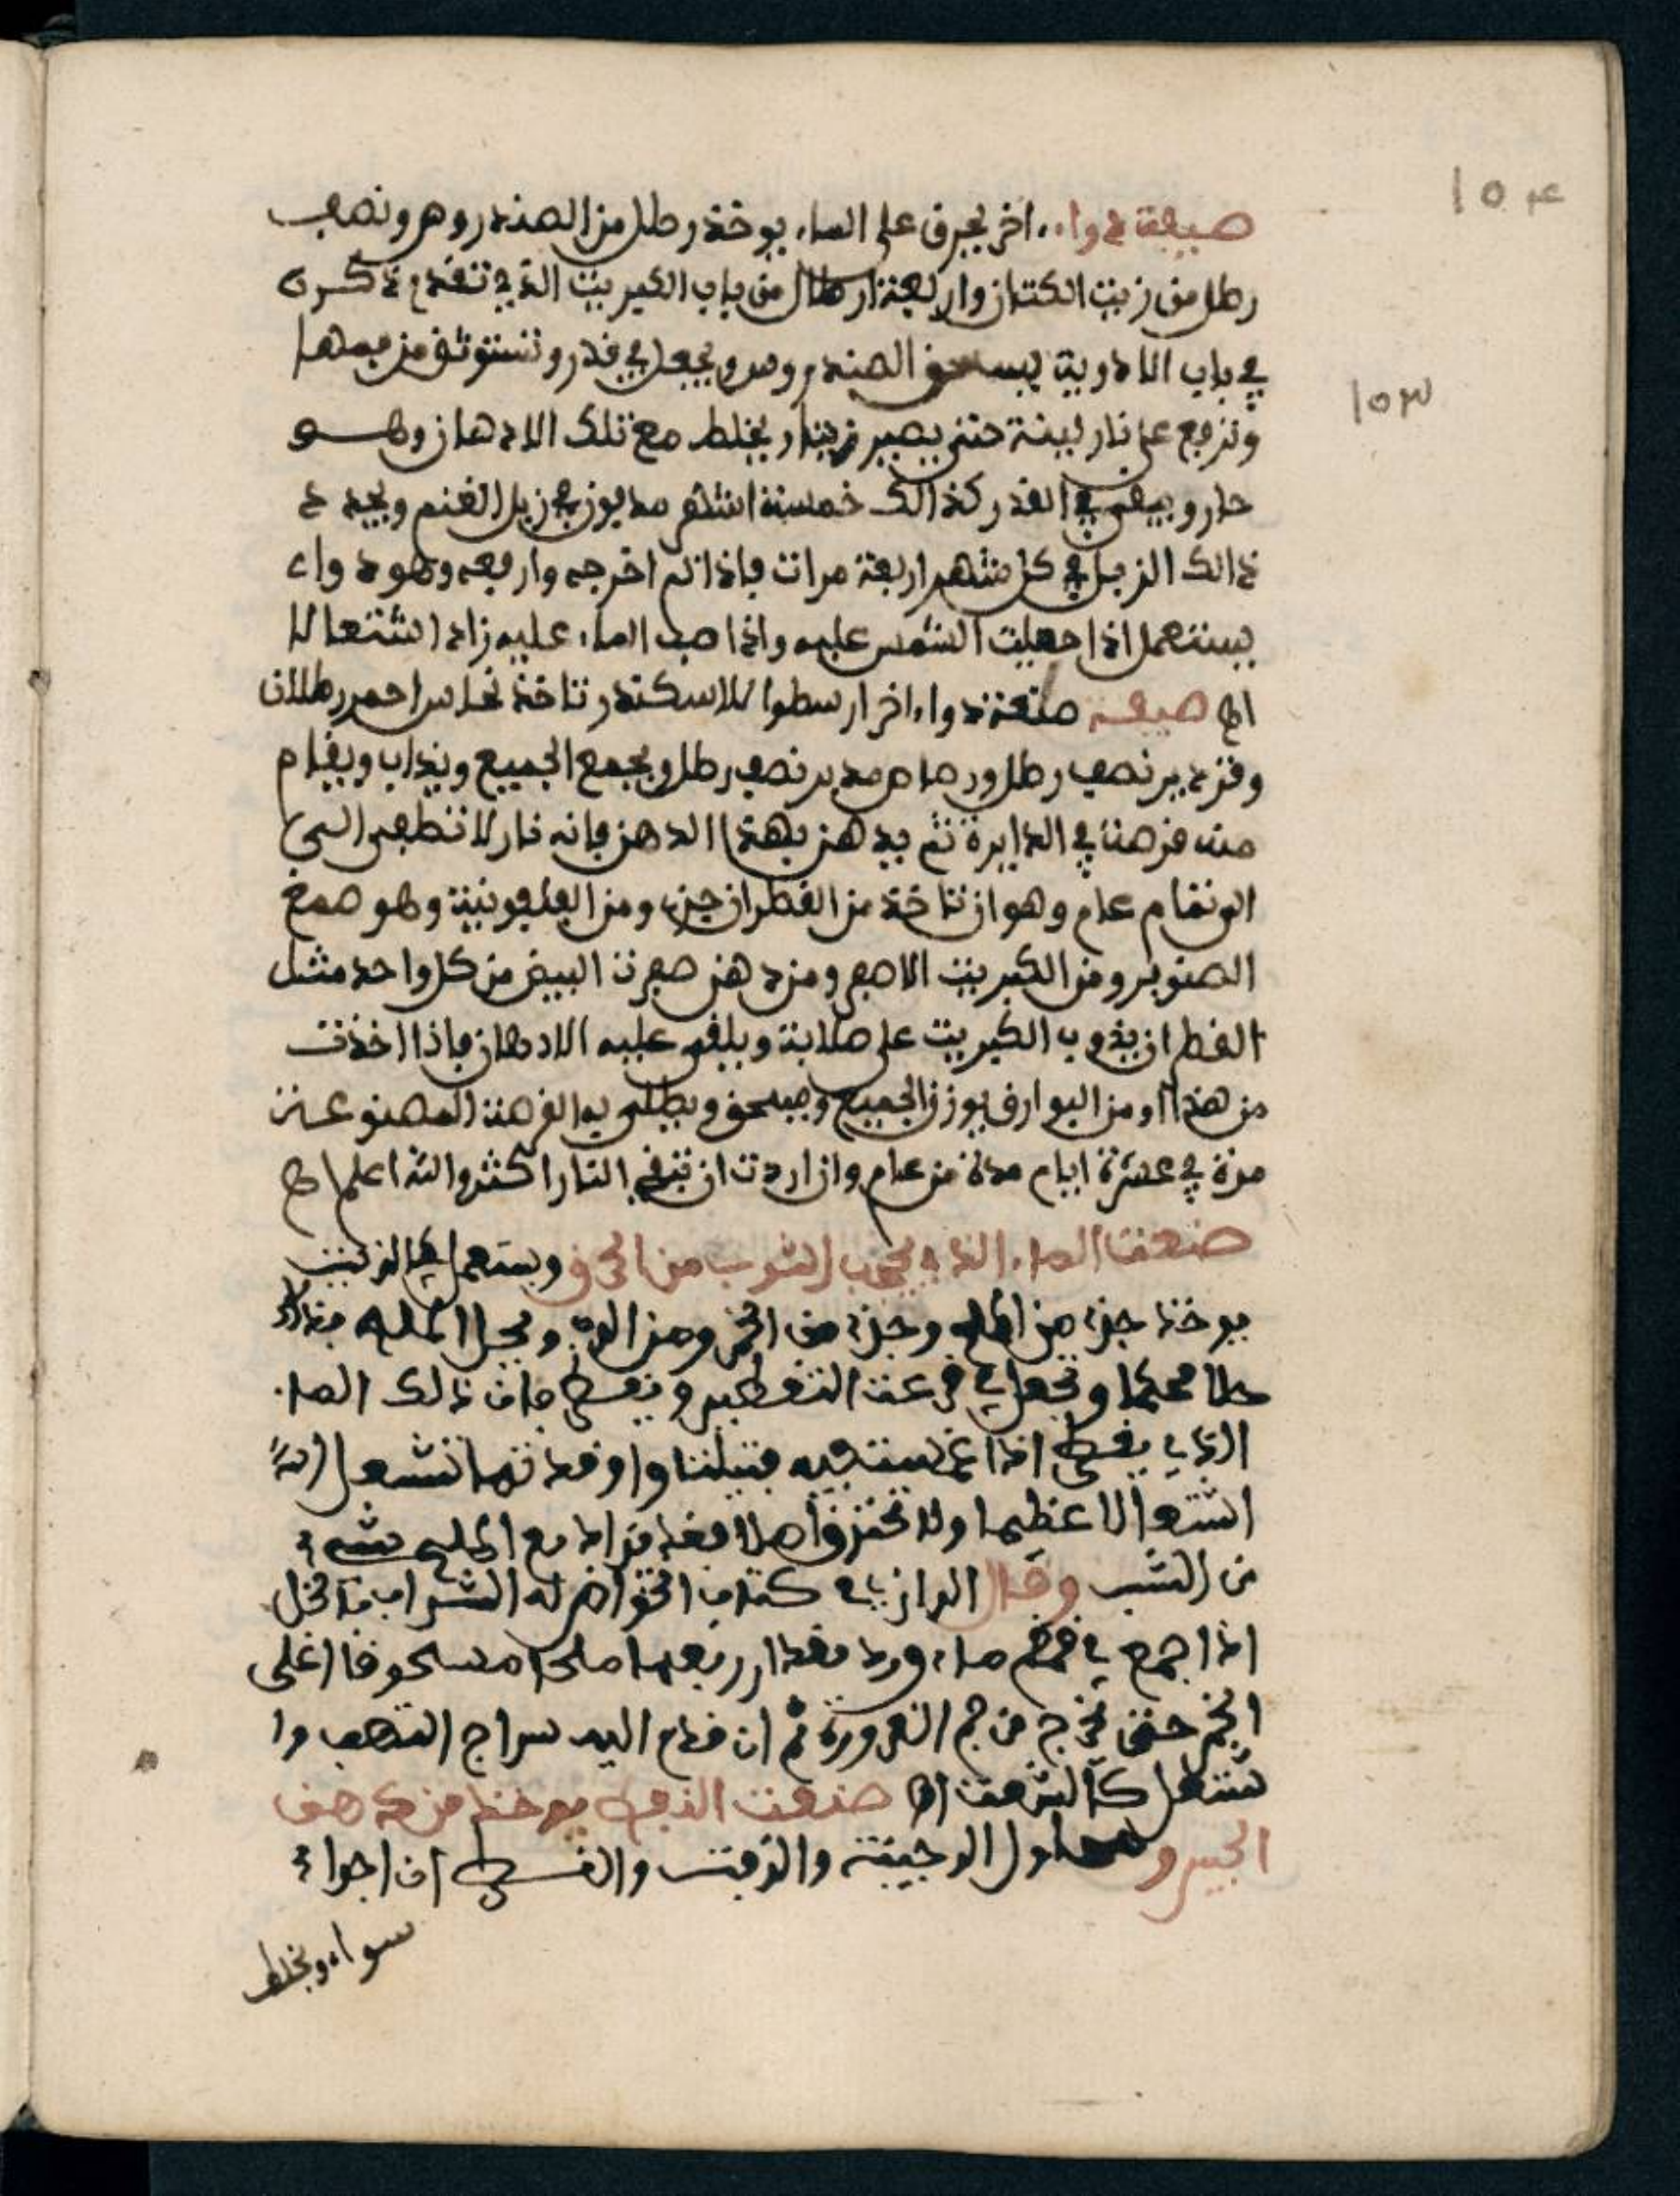 ١٥٤
صيغة دواء اخر يحرق على الماء يوخذ رطل من الصندروس ونصف
رطل من زيت الكتان واربعة ارطال من باب الكبريت الذي تقدم ذكره
في باب الادوية يسحق الصندروس ويجعل في قدر وتستوثق من فمها
١٥٣
وترفع على نار لينة حتى يصير زيتا ويخلط مع تلك الادهان وهو
حار ويبقى في القدر كذالك خمسة اشهر مدفون في زبل الغنم ويجدد
ذالك الزبل في كل شهر اربعة مرات فاذا تم اخرجه وارفعه وهو دواء
يستعمل اذا جعلت الشمس عليه واذا صب الماء عليه زاد اشتعالا
اه صيغة صنعة دواء اخر ارسطوا للاسكندر تاخذ نحاس احمر رطلان
نصف رطل ورصاص مدبر نصف رطل ويجمع الجميع ويذاب ويقام
منه في الدايرة ثم يدهن بهذا الدهن فانه نار لا تنطفي
الى تمام عام وهو ان تاخذ من القطران جزء ومن القلفونية وهو صمغ
الصنوبر ومن الكبريت الاصفر ومن دهن صفرت البيض من كل واحد مثل
القطران يذوب الكبريت على صلابة ويلقى عليه الادهان فاذا اخذت
من هذا ومن يوزن الجميع ويسحق ويطلى به المصنوعة
مرة في عشرة ايام مدة من عام وان اردت ان تبقى النار اكثر والله اعلم اه
صنعت الماء الذي يحجب الثوب من الحرق ويستعمل في الزيت
يوخذ جزء من الملح وجزء من الخمر ومن ويحل الملح
حلا محكما وتجعل في قرعت التقطير ويقطر فان ذالك الماء
الذي يقطر اذا غمست فيه فتيلتا واوقدتها تشعل
اشتعالا عظيما ولا تحترق اصلا وقد يزاد مع الملح شيء
من الشب وقال الرازي في كتاب الخواص له الشراب والخل
اذا اجمع في قمقم ماء ورد مقدار ربعها ملحا مسحوقا اغلى
الخمر حتى تخرج من فم القرورة ثم ان قدم اليه سراج التهب وا
شتعل كالشمعة اه صنعت النفط يوخذ من دهن
الحجر و الرجينة والزفت والنفط ان اجزاء
سواء ويخلط